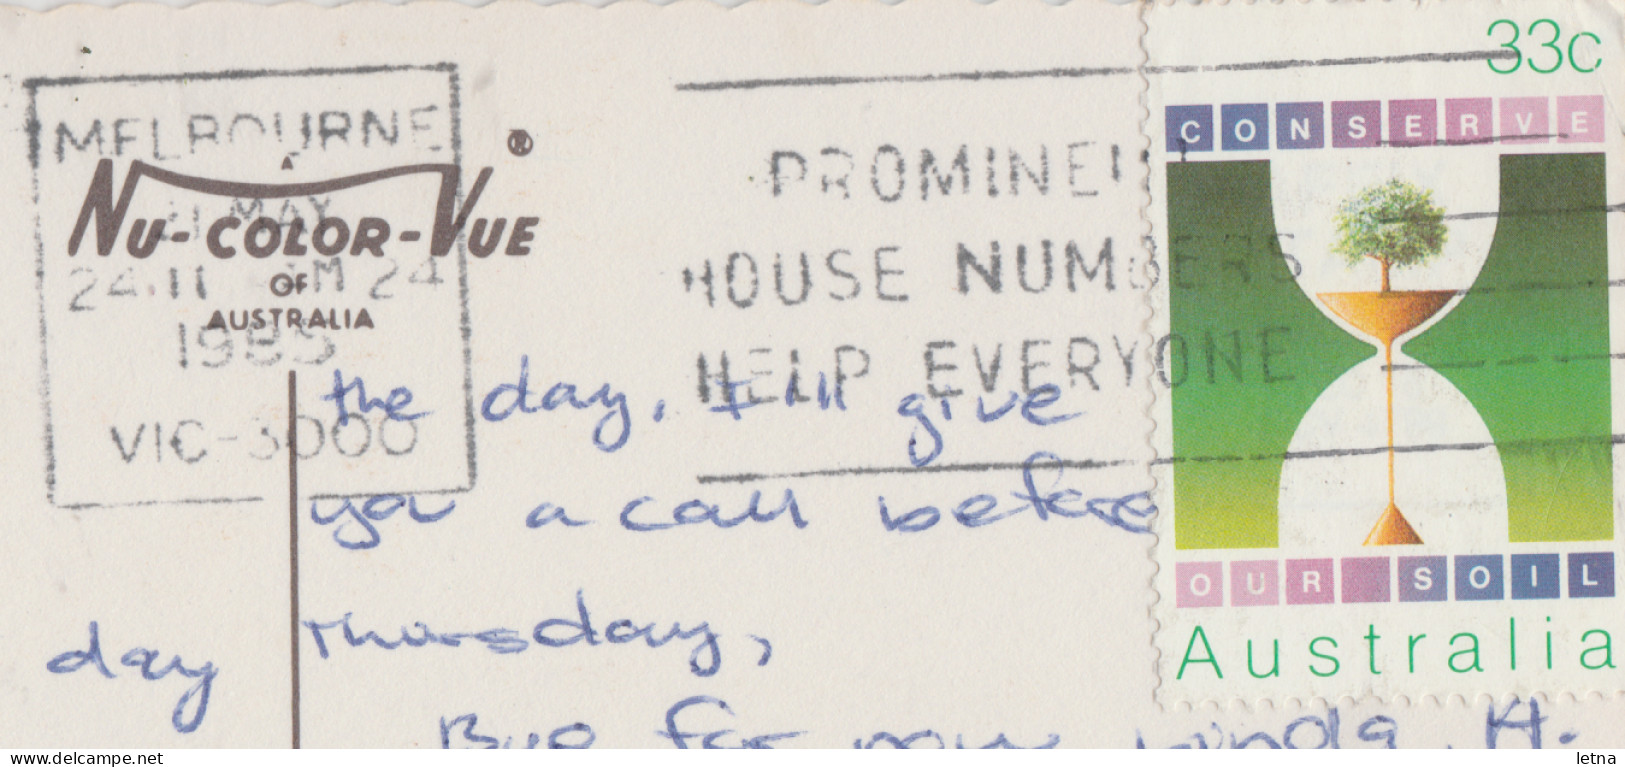 MELBOURNE
21 MAY
24 11 AM 24
1985
VIC-3000
A
NU-COLOR-VUE®
OF
AUSTRALIA
HOUSE NUMBERS
HELP EVERYONE
33c
CONSERVE
OUR SOIL
Australia
the day. I'll give
you a call before
Thursday,
day
Bye for now Linda. H.
letna